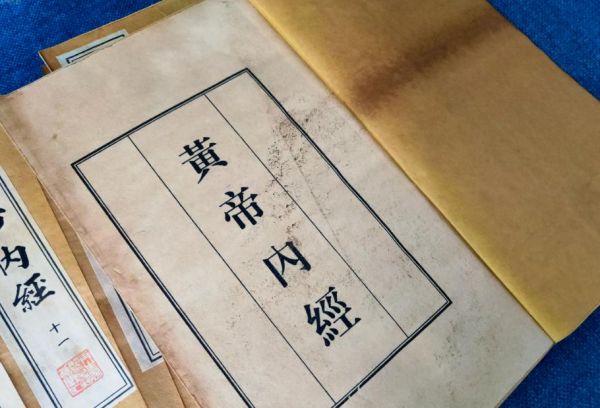 黃帝內經
內經
十一